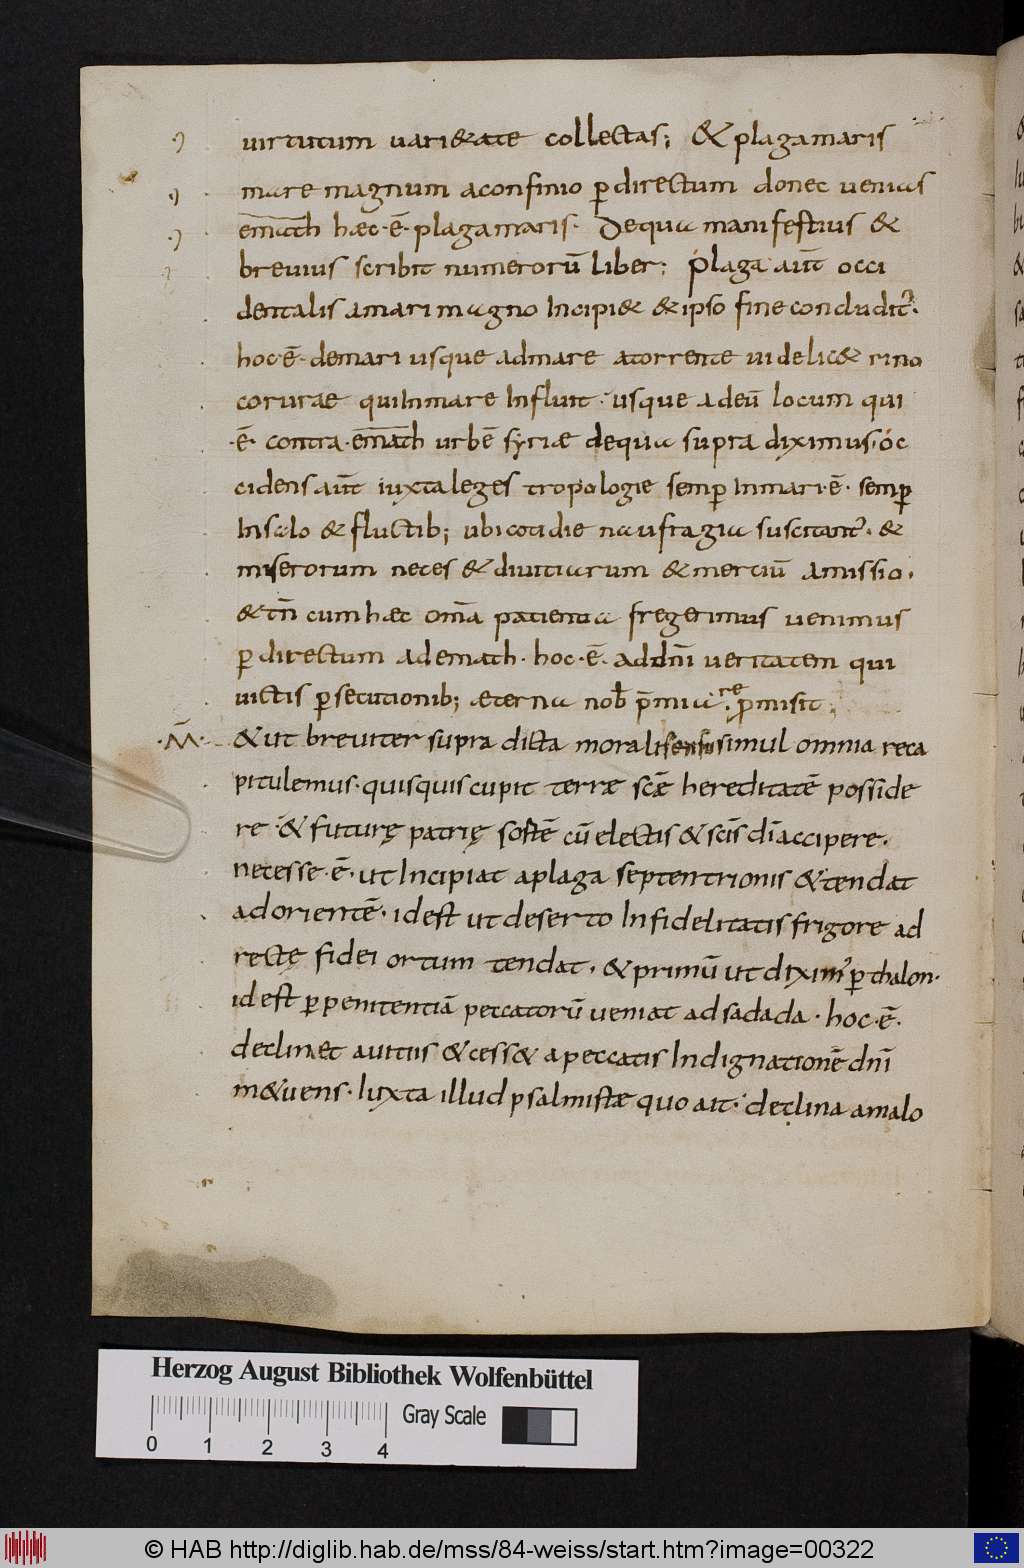 uirtutum uari&ate collectas; & plaga maris
mare magnum aconfinio p̱ directum donec uenias
em̅ath hæc·ē· plaga maris· Dequa manifestius &
breuius scribit numerorū liber; plaga aut̄ occi
dentalis amari magno Incipi& & ipso fine concludit᷒·
hoc·ē· demari usque admare atorrente uidelic& rino
coruræ qui Inmare Influit· usque adeū locum qui
·ē· contra·em̅ath urbē syriæ dequa supra diximus· oc
cidens aut̄ iuxta leges tropologie semp̱ Inmari·ē· semp̱
Insalo & fluctib; ubi cotidie naufragia suscitant᷒· &
miserorum neces & diuitiarum & mertiū amissio·
& tn̄ cum hæc om̄a patientia fregerimus uenimus
p̱ directum ademath· hoc·ē· addn̄i ueritatem qui
uictis p̱secutionib; æterna nob̄ p̄mia rep̱misit;
·M̄·
& ut breuiter supra dicta morali sensu simul omnia reca
pitulemus· quisquis cupit terræ scǣ hereditatē posside
re· & futurę patrię sortē cū electis & scīs dī accipere·
necesse·ē· ut Incipiat aplaga septentrionis & tendat
ad orientē· id est ut deserto Infidelitatis frigore ad
rectę fidei ortum tendat· & primū ut dixim᷒ p̱ thalon·
id est p̱ penitentiā peccatorū ueniat ad sadada· hoc·ē·
declinet auitiis & cess& apeccatis Indignationē dn̄i
m&uens· Iuxta illud psalmistæ quo ait· declina amalo
Herzog August Bibliothek Wolfenbüttel
0 1 2 3 4 Gray Scale
© HAB http://diglib.hab.de/mss/84-weiss/start.htm?image=00322